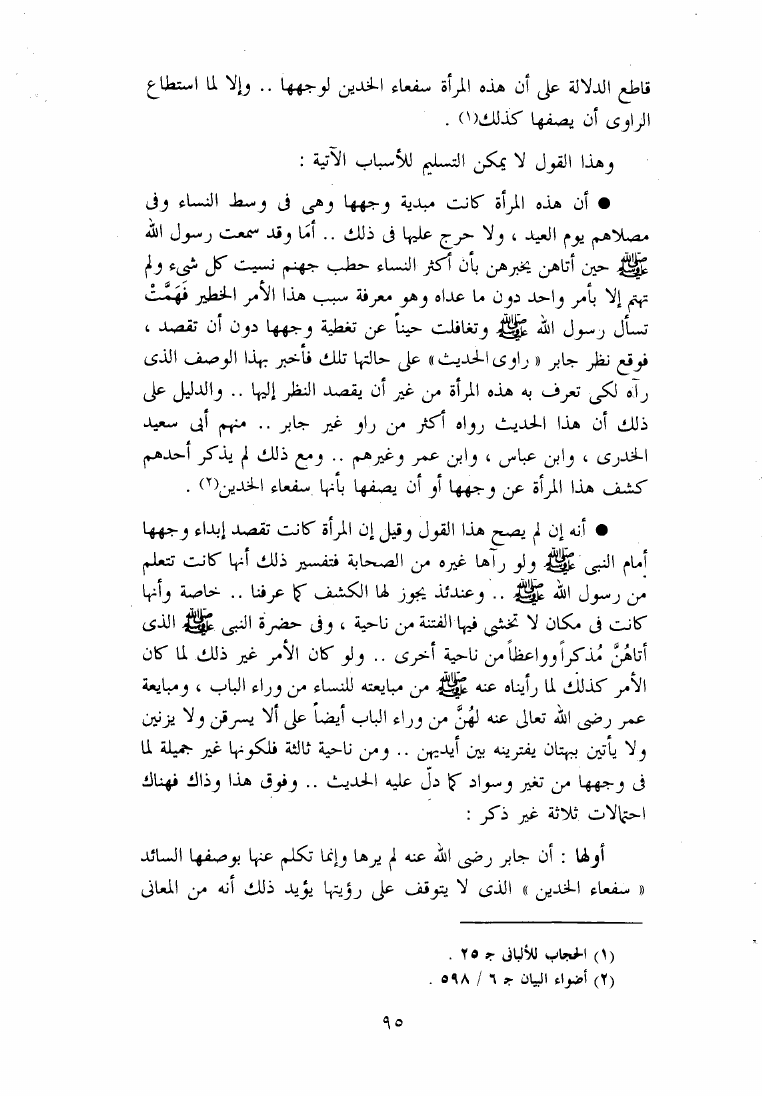 قاطع الدلالة على أن هذه المرأة سفعاء الخدين لوجهها .. وإلا لما استطاع
الراوى أن يصفها كذلك(١) .
وهذا القول لا يمكن التسليم للأسباب الآتية :
● أن هذه المرأة كانت مبدية وجهها وهى فى وسط النساء وفى
مصلاهم يوم العيد ، ولا حرج عليها فى ذلك .. أمَا وقد سمعت رسول الله
ﷺ حين أتاهن يخبرهن بأن أكثر النساء حطب جهنم نسيت كل شىء ولم
تهتم إلا بأمر واحد دون ما عداه وهو معرفة سبب هذا الأمر الخطير فَهَمَّتْ
تسأل رسول الله ﷺ وتغافلت حيناً عن تغطية وجهها دون أن تقصد ،
فوقع نظر جابر « راوى الحديث » على حالتها تلك فأخبر بهذا الوصف الذى
رآه لكى تعرف به هذه المرأة من غير أن يقصد النظر إليها .. والدليل على
ذلك أن هذا الحديث رواه أكثر من راو غير جابر .. منهم أبى سعيد
الخدرى ، وابن عباس ، وابن عمر وغيرهم .. ومع ذلك لم يذكر أحدهم
كشف هذا المرأة عن وجهها أو أن يصفها بأنها سفعاء الخدين(٢) .
● أنه إن لم يصح هذا القول وقيل إن المرأة كانت تقصد إبداء وجهها
أمام النبى ﷺ ولو رآها غيره من الصحابة فتفسير ذلك أنها كانت تتعلم
من رسول الله ﷺ .. وعندئذ يجوز لها الكشف كما عرفنا .. خاصة وأنها
كانت فى مكان لا تخشى فيها الفتنة من ناحية ، وفى حضرة النبى ﷺ الذى
أتاهُنَّ مُذكراً وواعظاً من ناحية أخرى .. ولو كان الأمر غير ذلك لما كان
الأمر كذلك لما رأيناه عنه ﷺ من مبايعته للنساء من وراء الباب ، ومبايعة
عمر رضى الله تعالى عنه لهُنَّ من وراء الباب أيضاً على ألا يسرقن ولا يزنين
ولا يأتين بهتان يفترينه بين أيديهن .. ومن ناحية ثالثة فلكونها غير جميلة لما
فى وجهها من تغير وسواد كما دلّ عليه الحديث .. وفوق هذا وذاك فهناك
احتمالات ثلاثة غير ذكر :
أولها : أن جابر رضى الله عنه لم يرها وإنما تكلم عنها بوصفها السائد
« سفعاء الخدين » الذى لا يتوقف على رؤيتها يؤيد ذلك أنه من المعانى
(١) الحجاب للألبانى جـ ٢٥ .
(٢) أضواء البيان جـ ٦ / ٥٩٨ .
٩٥